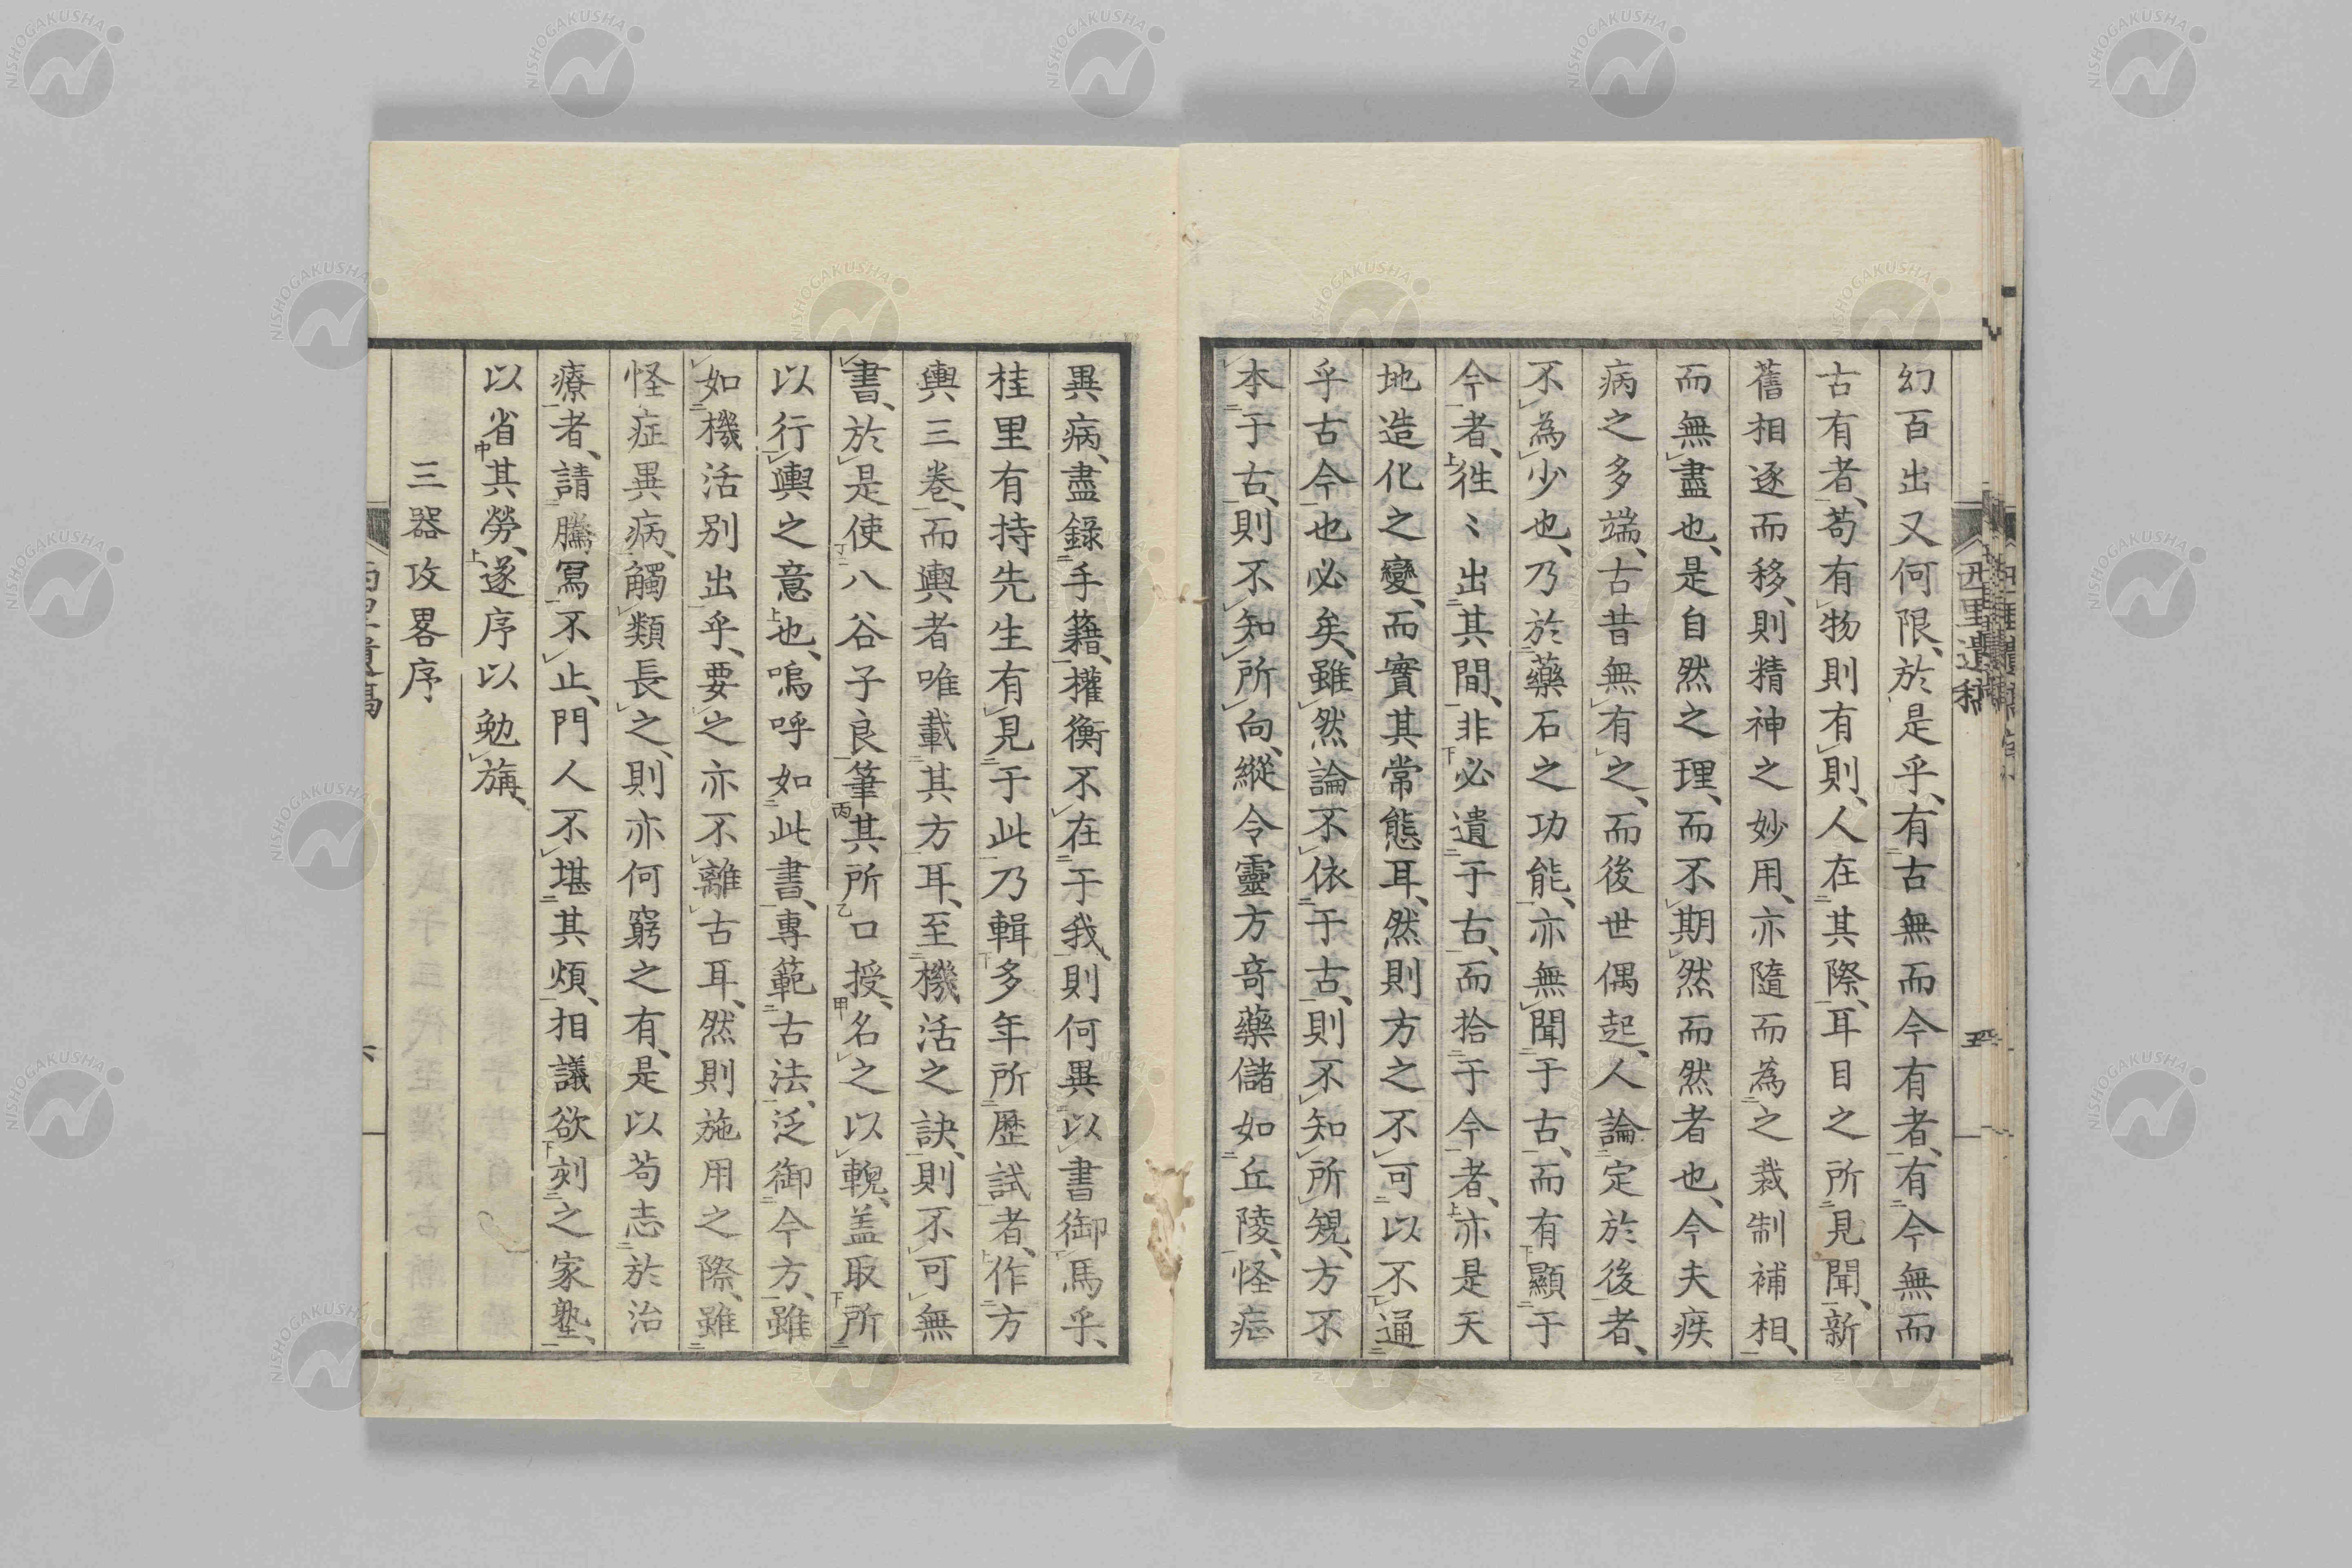 幻百出又何限、於是乎、有古無而今有者、有今無而
古有者、苟有物則有則、人在其際、耳目之所見聞、新
舊相逐而移、則精神之妙用、亦隨而為之裁制補相、
而無盡也、是自然之理、而不期然而然者也、今夫疾
病之多端、古昔無有之、而後世偶起、人論定於後者、
不為少也、乃於藥石之功能、亦無聞于古、而有顯于
今者、徃〻出其間、非必遺于古、而拾于今者、亦是天
地造化之變、而實其常態耳、然則方之不可以不通
乎古今也必矣、雖然論不依于古、則不知所規、方不
本于古、則不知所向、縱令靈方奇藥儲如丘陵、怪症
異病、盡錄手籍、權衡不在于我、則何異以書御馬乎、
桂里有持先生有見于此、乃輯多年所歷試者、作方
輿三卷、而輿者唯載其方耳、至機活之訣、則不可無
書、於是使八谷子良筆其所口授、名之以輗、盖取所
以行輿之意也、嗚呼如此書、專範古法、泛御今方、雖
如機活別出乎、要之亦不離古耳、然則施用之際、雖
怪症異病、觸類長之、則亦何窮之有、是以苟志於治
療者、請騰冩不止、門人不堪其煩、相議欲刻之家塾、
以省其勞、遂序以勉旃、
三器攻畧序
西里遺稿
五
NISHOGAKUSHA